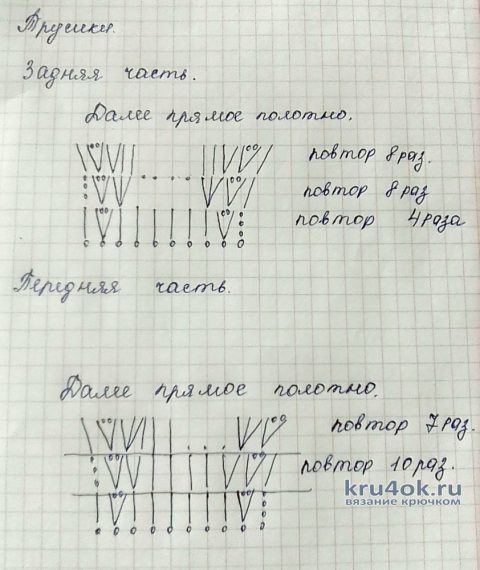 Трусики.
Задняя часть.
Далее прямое полотно.
повтор 8 раз.
повтор 8 раз
повтор 4 раза
Передняя часть.
Далее прямое полотно.
повтор 7 раз.
повтор 10 раз.
kru4ok.ru
вязание крючком